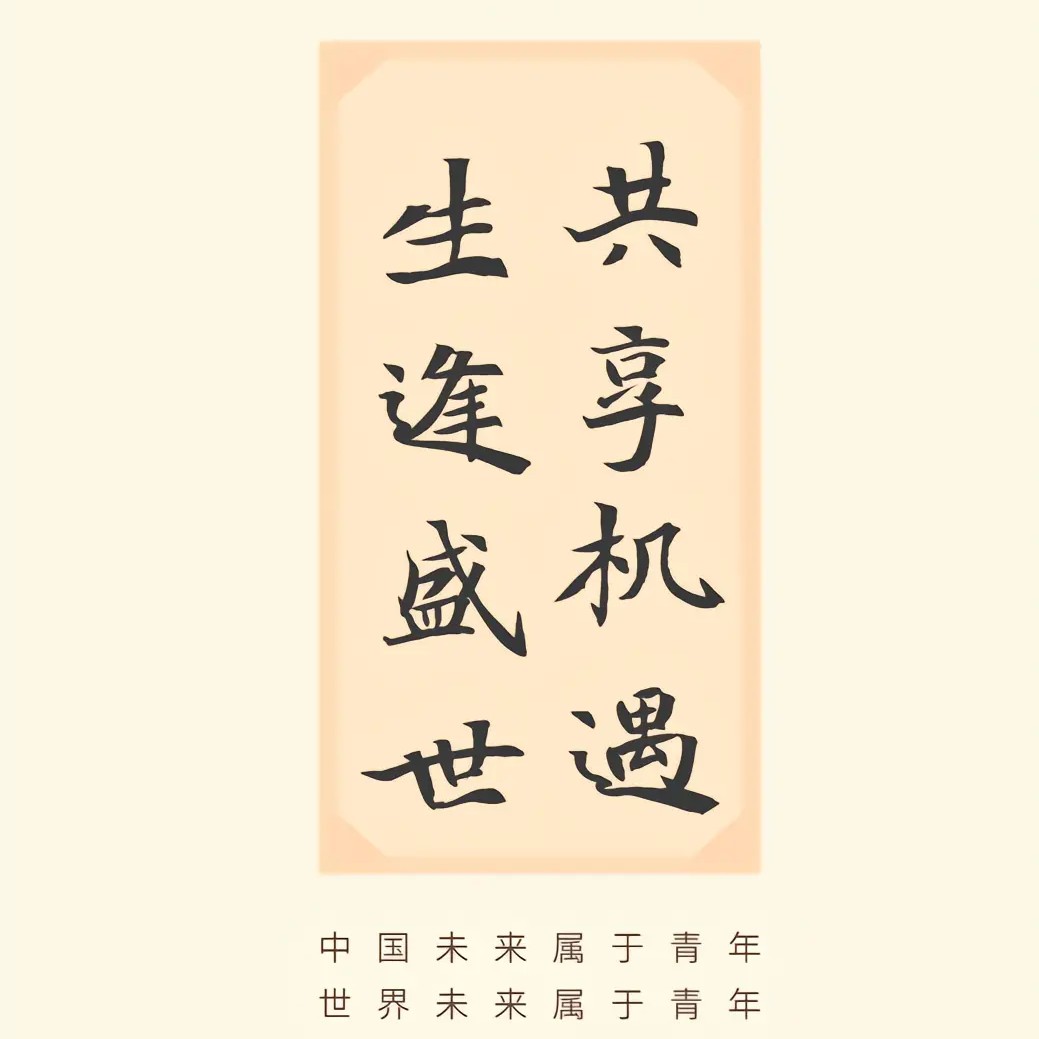 生逢盛世
共享机遇
中国未来属于青年
世界未来属于青年